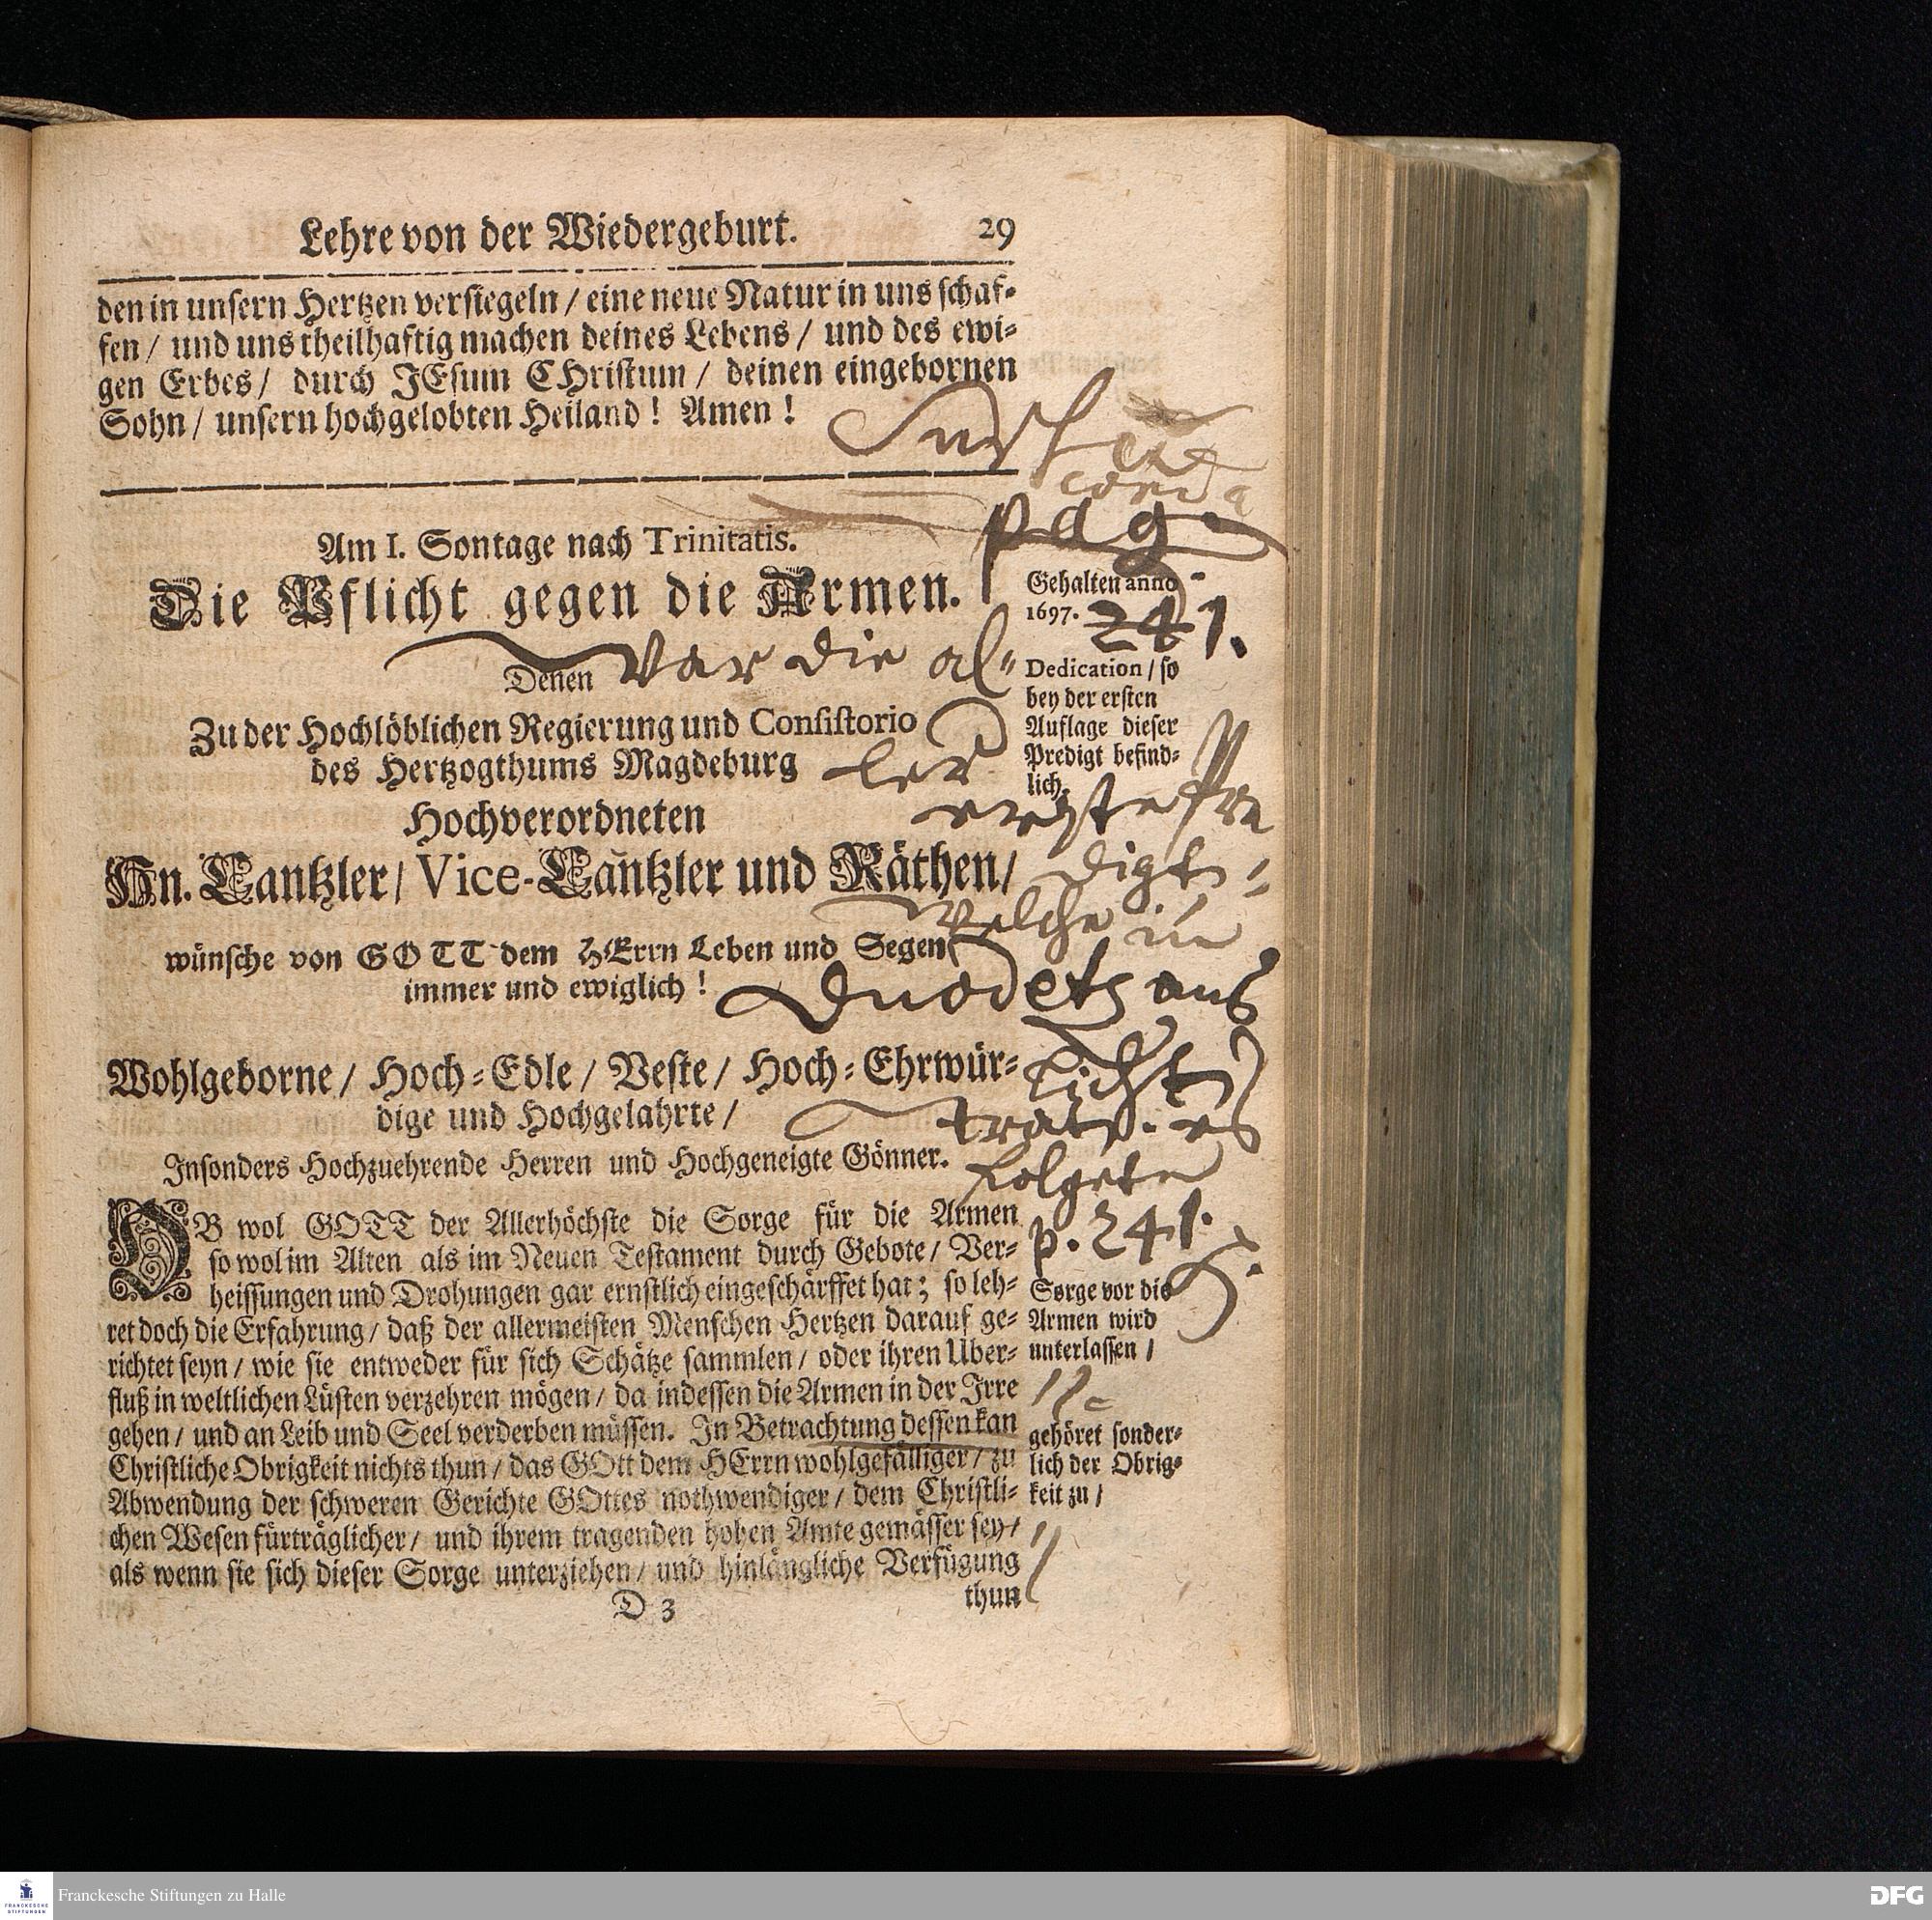 Lehre von der Wiedergeburt. 29
den in unsern Hertzen versiegeln / eine neue Natur in uns schaf-
fen / und uns theilhaftig machen deines Lebens / und des ewi-
gen Erbes / durch JEsum CHristum / deinen eingebornen
Sohn / unsern hochgelobten Heiland! Amen!
pag.
241.
Am I. Sontage nach Trinitatis.
Die Pflicht gegen die Armen.
Gehalten anno
1697.
var die al-
ler
erste Pre
digt,
welche in
Duodetz ans
Licht
trat. es
folgete
p. 241.
Denen
Zu der Hochlöblichen Regierung und Consistorio
des Hertzogthums Magdeburg
Hochverordneten
Hn. Cantzler / Vice-Cañtzler und Räthen /
Dedication / so
bey der ersten
Auflage dieser
Predigt befind-
lich.
wünsche von GOTT dem HErrn Leben und Segen
immer und ewiglich!
Wohlgeborne / Hoch-Edle / Veste / Hoch-Ehrwür-
dige und Hochgelahrte /
Insonders Hochzuehrende Herren und Hochgeneigte Gönner.
OB wol GOTT der Allerhöchste die Sorge für die Armen
so wol im Alten als im Neuen Testament durch Gebote / Ver-
heissungen und Drohungen gar ernstlich eingeschärffet hat; so leh-
ret doch die Erfahrung / daß der allermeisten Menschen Hertzen darauf ge-
richtet seyn / wie sie entweder für sich Schätze sammlen / oder ihren Uber-
fluß in weltlichen Lüsten verzehren mögen / da indessen die Armen in der Irre
gehen / und an Leib und Seel verderben müssen. In Betrachtung dessen kan
Christliche Obrigkeit nichts thun / das GOtt dem HErrn wohlgefälliger / zu
Abwendung der schweren Gerichte GOttes nothwendiger / dem Christli-
chen Wesen fürträglicher / und ihrem tragenden hohen Amte gemässer sey /
als wenn sie sich dieser Sorge unterziehen / und hinlängliche Verfügung
Sorge vor die
Armen wird
unterlassen /
gehöret sonder-
lich der Obrig-
keit zu /
D 3 thun
Franckesche Stiftungen zu Halle
FRANCKESCHE
STIFTUNGEN
DFG